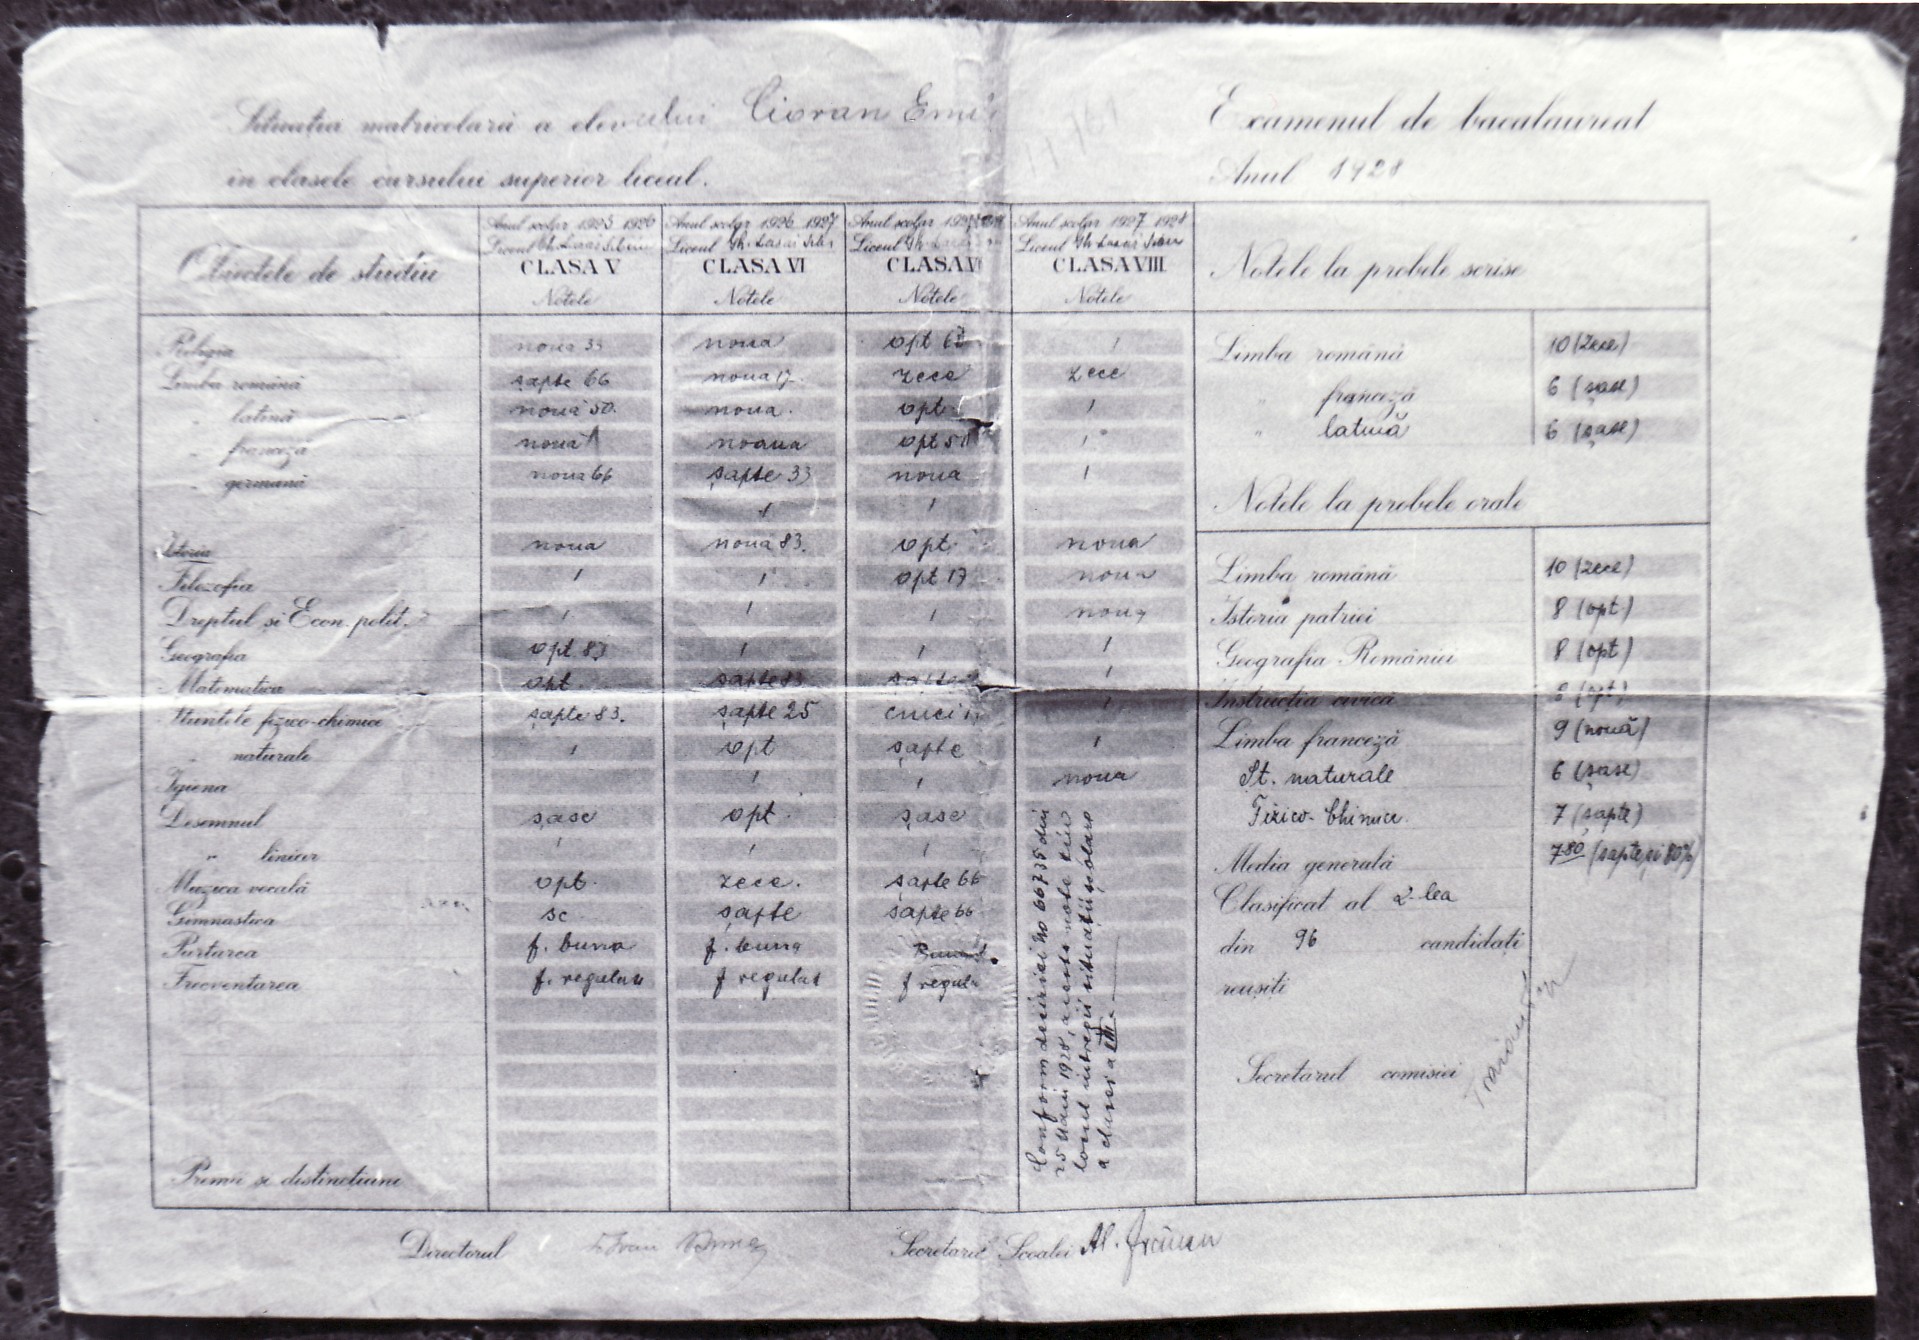 Situația matricolară a elevului Cioran Emil
Examenul de bacalaureat
în clasele cursului superior liceal.
Anul 1928
Obiectele de studiu
Anul școlar 1925 1926
Liceul Gh. Lazăr Sibiu
CLASA V
Notele
Anul școlar 1926 1927
Liceul Gh. Lazăr Sibiu
CLASA VI
Notele
Anul școlar
Liceul Gh. Lazăr
CLASA
Notele
Anul școlar 1927 1928
Liceul Gh. Lazăr Sibiu
CLASA VIII
Notele
Notele la probele scrise
Religia noua 33 noua opt 67 /
Limba română șapte 66 noua 17 zece zece
„ latină noua 50. noua. opt /
„ franceză noua noaua opt 50 /
„ germană noua 66 șapte 33 noua /
/ /
Istoria noua noua 83. opt noua
Filozofia / / opt 17 noua
Dreptul și Econ. polit. / / / noua
Geografia opt 83 / / /
Matematica opt șapte 83 șapte /
Științele fizico-chimice șapte 83. șapte 25 cinci /
„ naturale / opt șapte /
Igiena / / noua
Desemnul șase opt șase
„ liniar / / /
Muzica vocală opt zece. șapte 66
Gimnastica sc șapte șapte 66
Purtarea f. buna f. buna
Frecventarea f. regulat f regulat f regulat
Premii și distincțiuni
Conform deciziei No 66735 din
25 Maiu 1928, aceste note țin
locul întregii situații școlare
a clasei a VIII
Limba română 10 (zece)
„ franceză 6 (șase)
„ latină 6 (șase)
Notele la probele orale
Limba română 10 (zece)
Istoria patriei 8 (opt)
Geografia României 8 (opt)
Instrucția civică 8 (opt)
Limba franceză 9 (nouă)
Șt. naturale 6 (șase)
Fizico-Chimice. 7 (șapte)
Media generală 7.80 (șapte și 80%)
Clasificat al 2-lea
din 96 candidați
reușiti
Secretarul comisiei
Directorul
Secretarul Școalei Al.